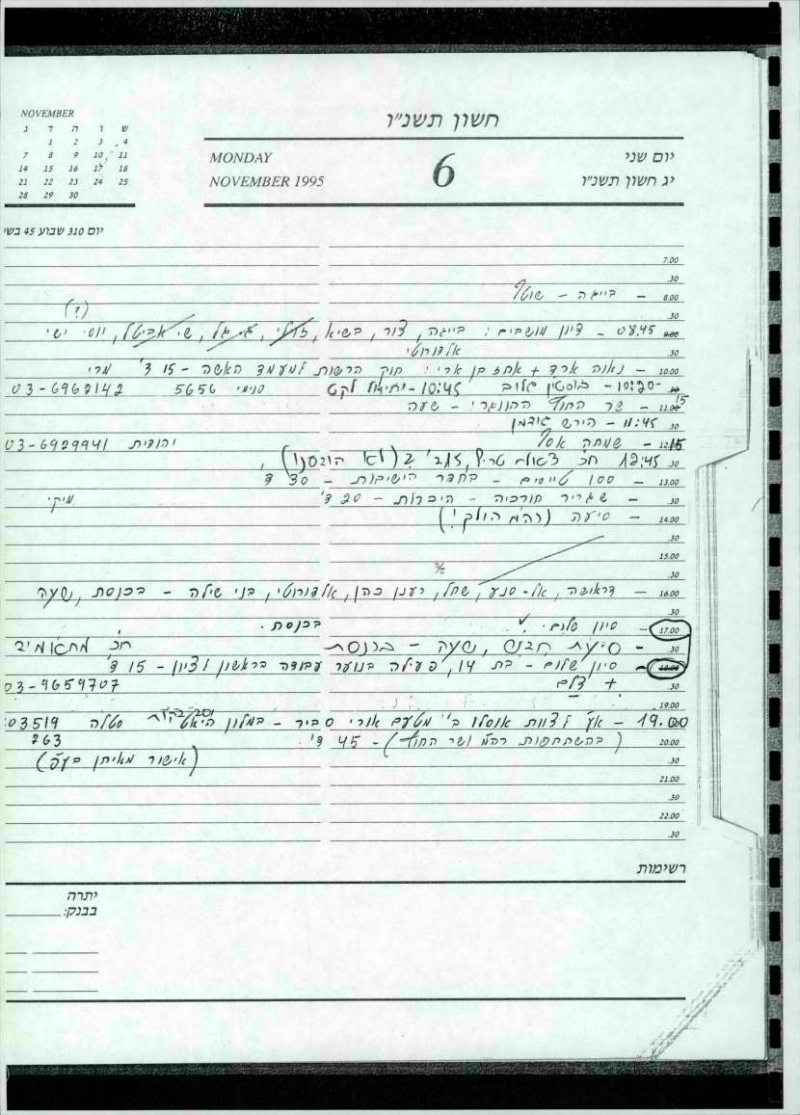 NOVEMBER
ש ו ה ד ג
4 3 2 1
11 10 9 8 7
18 17 16 15 14
25 24 23 22 21
30 29 28
חשון תשנ״ו
MONDAY
NOVEMBER 1995
6
יום שני
יג חשון תשנ״ו
יום 310 שבוע 45 בשי
7.00
.30
8.00 - בייגה - שוטף
.30 (?)
9.00 08.45 - דיון מושבים: בייגה, צור, בשיא, שי אביטל, יוסי ישי
.30 אלדורוטי
10.00 - נאוה ארד + אחז בן ארי: חוק הרשות למעמד האשה - 15 ד' מרי
10:20 - גלוב 10:45 - יחיאל לקט פנימי 5656 03-6967142
11.00 15 - שר החוץ ההונגרי - שעה
.30 11:45 - הירש גודמן
12.15 - שמחה אסף יהודית 03-6929941
.30 12:45 חכ סאלח טריף, ב (לא הוכנסו),
13.00 - 100 טייסים - בחדר הישיבות - 30 ד
.30 - שגריר תורכיה - היכרות - 20 ד' מיקי
14.00 - סיעה (רהמ הולך!)
.30
15.00
.30
16.00 - דראושה, אל-סנע, שחל, רענן כהן, אלדורוטי, בני שילה - בכנסת, שעה
.30
17.00 - סיון שלום. בכנסת.
.30 - סיעת חדש, שעה - בכנסת חכ מחאמיד
18.00 - סיון שלום - בת 14, פעילה בנוער עבודה בראשון לציון - 15 ד'
.30 + צלם 03-9659707
19.00
19.00 - אע לצוות אוסלו ב' מטעם אורי סביר - במלון היאט סטלה 03519
20.00 (בהשתתפות רהמ ושר החוץ) - 45 ד'. 263
.30 (אישור מאיתן בעפ)
21.00
.30
22.00
.30
רשימות
יתרה
בבנק: